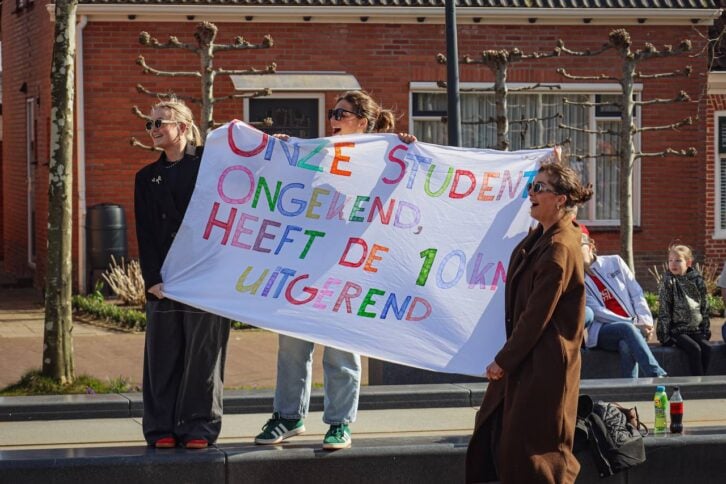 ONZE STUDENT
ONGEKEND,
HEEFT DE 10KM
UITGEREND